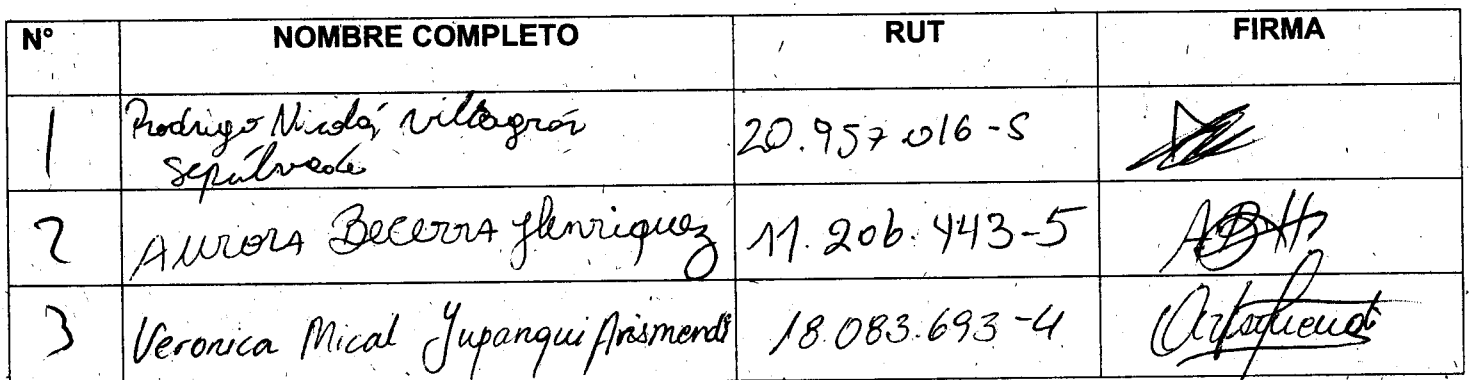 N° NOMBRE COMPLETO RUT FIRMA
1 Rodrigo Nicolás Villagrán 20.957.016-5
Sepúlveda
2 Aurora Becerra Henriquez 11.206.443-5 ABH
3 Veronica Mical Yupanqui Arismendi 18.083.693-4